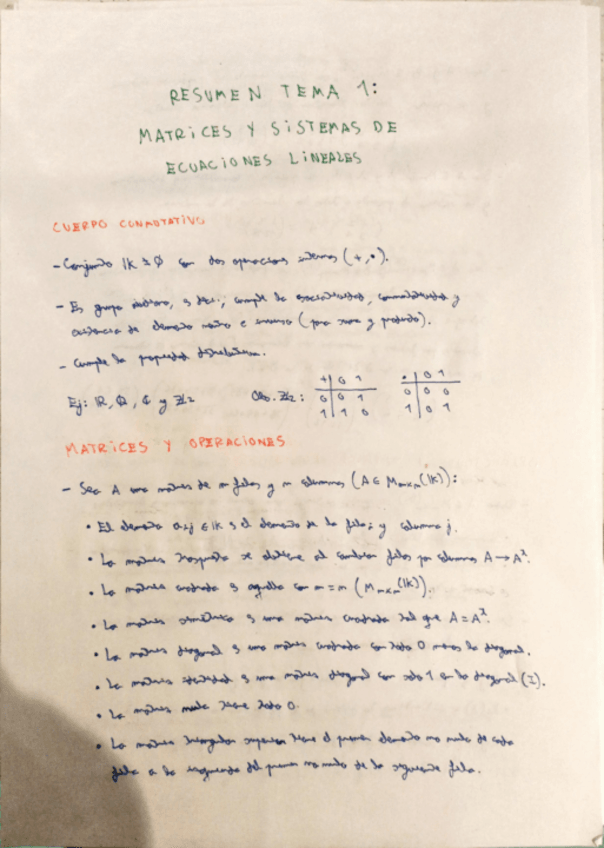 RESUMEN TEMA 1:
MATRICES Y SISTEMAS DE
ECUACIONES LINEALES
CUERPO CONMUTATIVO
- Conjunto IK ≠ ∅ con dos operaciones internas (+,•).
- Es grupo abeliano, es decir, cumple la asociatividad, conmutatividad y
existencia de elemento neutro e inverso (para suma y producto).
- Cumple la propiedad distributiva.
Ej: IR, Q, C y Z/2 Obs. Z/2:
+ 0 1
0 0 1
1 1 0
• 0 1
0 0 0
1 0 1
MATRICES Y OPERACIONES
- Sea A una matriz de m filas y n columnas (A ∈ Mmxn(IK)):
• El elemento aij ∈ IK es el elemento de la fila i y columna j.
• La matriz traspuesta se obtiene al cambiar filas por columnas A → Aᵗ.
• La matriz cuadrada es aquella con m = n (Mnxn(IK)).
• La matriz simétrica es una matriz cuadrada tal que A = Aᵗ.
• La matriz diagonal es una matriz cuadrada con todo 0 menos la diagonal.
• La matriz identidad es una matriz diagonal con todo 1 en la diagonal (I).
• La matriz nula tiene todo 0.
• La matriz triangular superior tiene el primer elemento no nulo de cada
fila a la izquierda del primer no nulo de la siguiente fila.